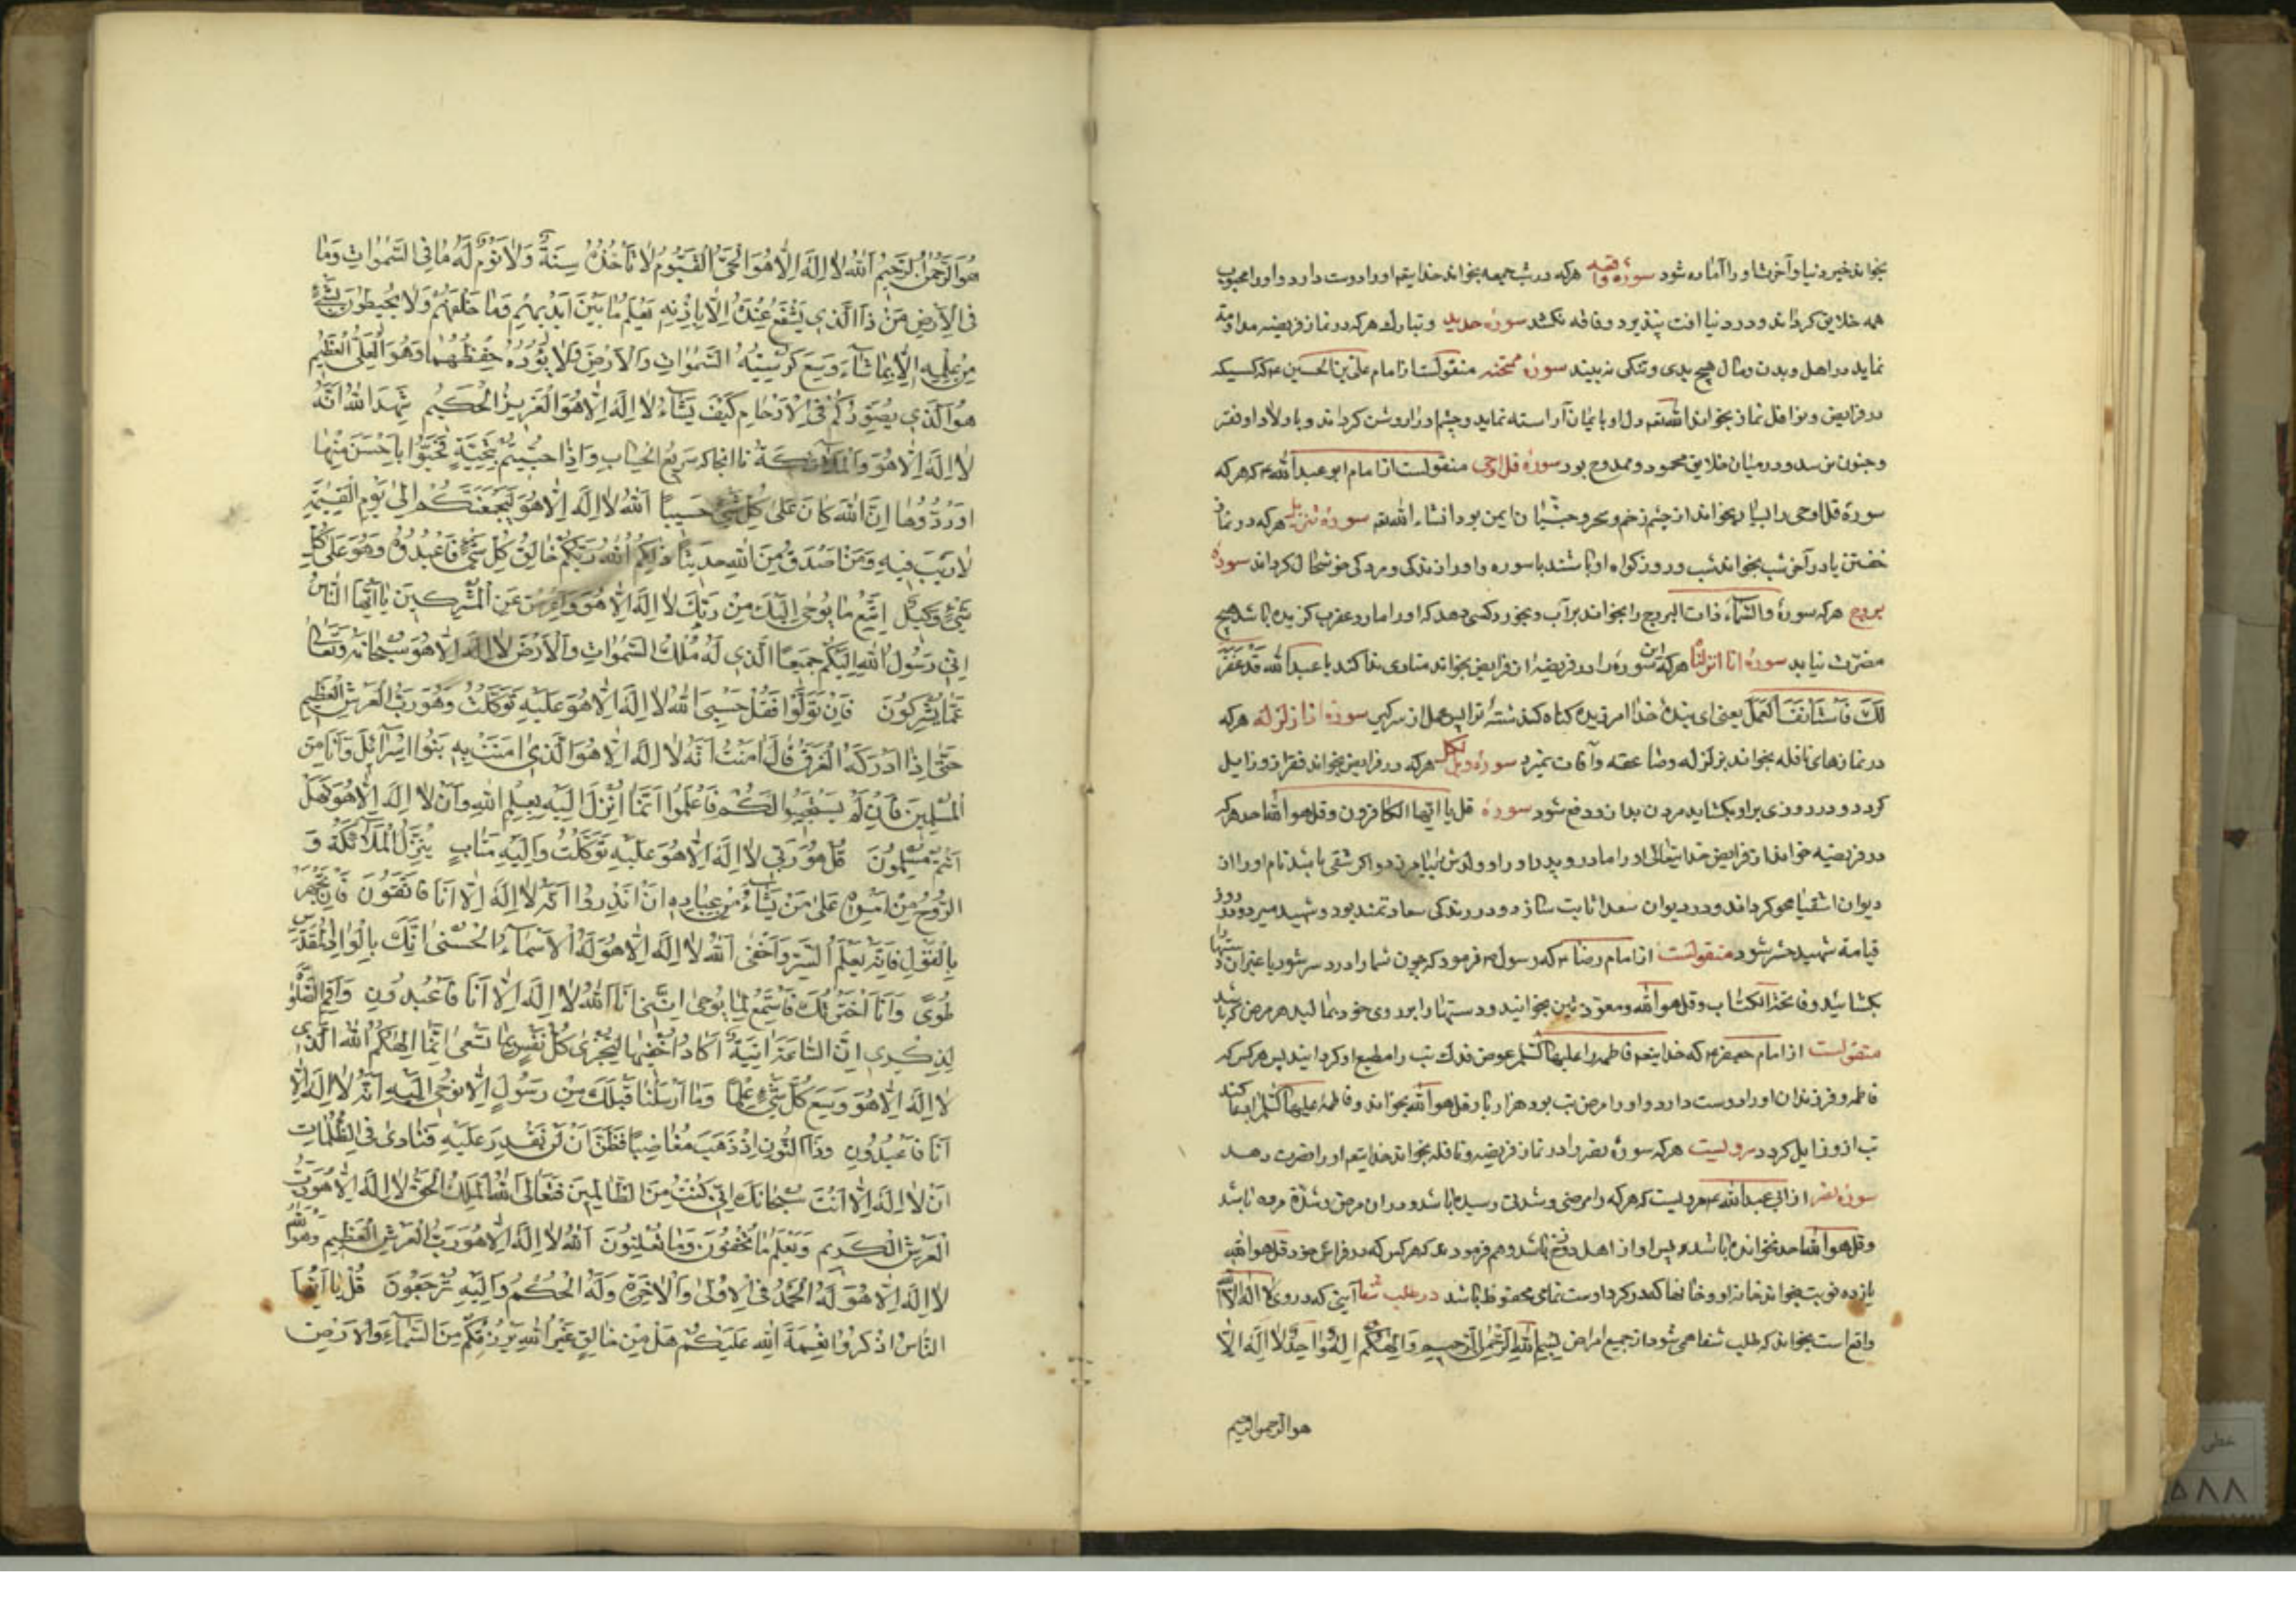 بخواند خیر دنیا و آخرت او را آماده شود سورهٔ واقعه هرکه در شب جمعه بخواند خدایتعم او را دوست دارد و او را محبوب
همه خلایق گرداند و در دنیا آفت نپذیرد و فاقه نکشد سورهٔ حدید و تبارک هرکه در نماز فریضه مداومة
نماید در اهل و بدن و مال هیچ بدی و تنکی نه بیند سورهٔ ممتحنه منقولست از امام علی بن الحسین ع م که کسیکه
در فرایض و نوافل نماز بخواند الله تعم دل او با ایمان آراسته نماید و چشم او را روشن گرداند و با ولاد او فقر
و جنون نرسد و در میان خلایق محمود و ممدوح بود سورهٔ قل اوحی منقولست از امام ابو عبد الله ع م که هرکه
سورهٔ قل اوحی را بسیار بخواند از چشم زخم و سحر و جنیان ایمن بود انشاء الله تعم سورهٔ مزمل هرکه در نماز
خفتن یا در آخر شب بخواند شب و روز کواه او باشند با سوره و او را زندکی و مردکی خوشحال کرداند سورهٔ
بروج هرکه سورهٔ والسماء ذات البروج را بخواند بر آب و بخورد کسی دهد که او را مار و عقرب کزیده باشد هیچ
مضرت نیابد سورهٔ انا انزلنا هرکه این سوره را در فریضهٔ از فرایض بخواند منادی ندا کند یا عبد الله قد غفر
لك فاستانف العمل یعنی ای بندهٔ خدا آمرزیده کناه کذشتهٔ ترا پس عمل از سر کیر سورهٔ اذا زلزله هرکه
در نمازهای نافله بخواند بزلزله و صاعقه و آفات نمیرد سورهٔ ویل لکل هرکه در فرایض بخواند فقر از و زایل
کردد و در روزی بر او بکشاید مردن بد از و دفع شود سورهٔ قل یا ایها الکافرون و قل هو الله احد هرکه
در فریضه خواند از فرایض خدایتعالی او را مادر و پدر او را و اولادش را بیامرزد و اکر شقی باشد نام او را از
دیوان اشقیا محو کرداند و در دیوان سعدا ثابت سازد و در زندکی سعادتمند بود و شهید میرد و روز
قیامة شهید حشر شود منقولست از امام رضا ع م که رسول ص م فرمود که چون شما را درد سر شود یا غیر آن دستها را
بکشائید و فاتحة الکتاب و قل هو الله و معوذتین بخوانید و دستها را بر روی خود بمالید هر مرض که باشد
منقولست از امام جعفر ع م که خدایتعم فاطمه را علیها السلم عوض فدک تب را مطیع او کردانید پس هر کس که
فاطمه و فرزندان او را دوست دارد و او را مرض تب بود هزار بار قل هو الله بخواند و فاطمهٔ علیها السلم را بدعا کند
تب از و زایل کردد مرویست هرکه سورهٔ نصر را در نماز فریضه و نافله بخواند خدایتعم او را نصرت دهد
سورهٔ نصر از ابی عبد الله ع م مرویست که هرکه را مرضی و شدتی رسیده باشد و در آن مرض و شدة مرده باشد
و قل هو الله احد نخوانده باشد پس او از اهل دوزخ باشد و هم فرمود ع م که هر کس که در فراش خود قل هو الله
یازده نوبت بخواند خانه او و خانها که در کرد اوست تمامی محفوظ باشد در طلب شفا آیتی که در وی لا اله الا الله
واقع است بخواند که طلب شفا می شود از جمیع امراض بسم الله الرحمن الرحیم و الهکم اله واحد لا اله الا
هو الرحمن الرحیم
هُوَ الرَّحْمٰنُ الرَّحِیمُ اَللهُ لا اِلٰهَ اِلّا هُوَ الْحَیُّ الْقَیُّومُ لا تَأْخُذُهُ سِنَةٌ وَلا نَوْمٌ لَهُ ما فِی السَّمٰواتِ وَما
فِی الْاَرْضِ مَنْ ذَا الَّذی یَشْفَعُ عِنْدَهُ اِلّا بِاِذْنِهِ یَعْلَمُ ما بَیْنَ اَیْدیهِمْ وَما خَلْفَهُمْ وَلا یُحیطُونَ بِشَیْءٍ
مِنْ عِلْمِهِ اِلّا بِما شاءَ وَسِعَ کُرْسِیُّهُ السَّمٰواتِ وَالْاَرْضَ وَلا یَؤُدُهُ حِفْظُهُما وَهُوَ الْعَلِیُّ الْعَظیمُ
هُوَ الَّذی یُصَوِّرُکُمْ فِی الْاَرْحامِ کَیْفَ یَشاءُ لا اِلٰهَ اِلّا هُوَ الْعَزیزُ الْحَکیمُ شَهِدَ اللهُ اَنَّهُ
لا اِلٰهَ اِلّا هُوَ وَالْمَلٰئِکَةُ تا انجا که سریع الحساب وَاِذا حُیّیتُمْ بِتَحِیَّةٍ فَحَیُّوا بِاَحْسَنَ مِنْها
اَوْ رُدُّوها اِنَّ اللهَ کانَ عَلیٰ کُلِّ شَیْءٍ حَسیبًا اَللهُ لا اِلٰهَ اِلّا هُوَ لَیَجْمَعَنَّکُمْ اِلیٰ یَوْمِ الْقِیٰمَةِ
لا رَیْبَ فیهِ وَمَنْ اَصْدَقُ مِنَ اللهِ حَدیثًا ذٰلِکُمُ اللهُ رَبُّکُمْ خالِقُ کُلِّ شَیْءٍ فَاعْبُدُوهُ وَهُوَ عَلیٰ کُلِّ
شَیْءٍ وَکیلٌ اِتَّبِعْ ما یُوحیٰ اِلَیْكَ مِنْ رَبِّكَ لا اِلٰهَ اِلّا هُوَ وَاَعْرِضْ عَنِ الْمُشْرِکینَ یا اَیُّهَا النّاسُ
اِنّی رَسُولُ اللهِ اِلَیْکُمْ جَمیعًا الَّذی لَهُ مُلْكُ السَّمٰواتِ وَالْاَرْضِ لا اِلٰهَ اِلّا هُوَ سُبْحانَهُ وَتَعالیٰ
عَمّا یُشْرِکُونَ فَاِنْ تَوَلَّوْا فَقُلْ حَسْبِیَ اللهُ لا اِلٰهَ اِلّا هُوَ عَلَیْهِ تَوَکَّلْتُ وَهُوَ رَبُّ الْعَرْشِ الْعَظیمِ
حَتّیٰ اِذا اَدْرَکَهُ الْغَرَقُ قالَ اٰمَنْتُ اَنَّهُ لا اِلٰهَ اِلّا هُوَ الَّذی اٰمَنَتْ بِهِ بَنُوا اِسْرائیلَ وَاَنَا مِنَ
الْمُسْلِمینَ فَاِنْ لَمْ یَسْتَجیبُوا لَکُمْ فَاعْلَمُوا اَنَّما اُنْزِلَ اِلَیْهِ بِعِلْمِ اللهِ وَاَنْ لا اِلٰهَ اِلّا هُوَ فَهَلْ
اَنْتُمْ مُسْلِمُونَ قُلْ هُوَ رَبّی لا اِلٰهَ اِلّا هُوَ عَلَیْهِ تَوَکَّلْتُ وَاِلَیْهِ مَتابِ یُنَزِّلُ الْمَلائِکَةَ وَ
الرُّوحَ مِنْ اَمْرِهِ عَلیٰ مَنْ یَشاءُ مِنْ عِبادِهِ اَنْ اَنْذِرُوا اَنَّهُ لا اِلٰهَ اِلّا اَنَا فَاتَّقُونَ فَاِنْ تَجْهَرْ
بِالْقَوْلِ فَاِنَّهُ یَعْلَمُ السِّرَّ وَاَخْفیٰ اَللهُ لا اِلٰهَ اِلّا هُوَ لَهُ الْاَسْماءُ الْحُسْنیٰ اِنَّكَ بِالْوادِ الْمُقَدَّسِ
طُوًی وَاَنَا اخْتَرْتُكَ فَاسْتَمِعْ لِما یُوحیٰ اِنَّنی اَنَا اللهُ لا اِلٰهَ اِلّا اَنَا فَاعْبُدُونِ وَاَقِمِ الصَّلٰوةَ
لِذِکْری اِنَّ السّاعَةَ اٰتِیَةٌ اَکادُ اُخْفیها لِتُجْزیٰ کُلُّ نَفْسٍ بِما تَسْعیٰ اِنَّما اِلٰهُکُمُ اللهُ الَّذی
لا اِلٰهَ اِلّا هُوَ وَسِعَ کُلَّ شَیْءٍ عِلْمًا وَما اَرْسَلْنا قَبْلَكَ مِنْ رَسُولٍ اِلّا نُوحی اِلَیْهِ اَنَّهُ لا اِلٰهَ اِلّا
اَنَا فَاعْبُدُونِ وَذَا النُّونِ اِذْ ذَهَبَ مُغاضِبًا فَظَنَّ اَنْ لَنْ نَقْدِرَ عَلَیْهِ فَنادیٰ فِی الظُّلُماتِ
اَنْ لا اِلٰهَ اِلّا اَنْتَ سُبْحانَكَ اِنّی کُنْتُ مِنَ الظّالِمینَ فَتَعالَی اللهُ الْمَلِكُ الْحَقُّ لا اِلٰهَ اِلّا هُوَ رَبُّ
الْعَرْشِ الْکَریمِ وَیَعْلَمُ ما تُخْفُونَ وَما تُعْلِنُونَ اَللهُ لا اِلٰهَ اِلّا هُوَ رَبُّ الْعَرْشِ الْعَظیمِ وَهُوَ اللهُ
لا اِلٰهَ اِلّا هُوَ لَهُ الْحَمْدُ فِی الْاُولیٰ وَالْاٰخِرَةِ وَلَهُ الْحُکْمُ وَاِلَیْهِ تُرْجَعُونَ قُلْ یا اَیُّهَا
النّاسُ اذْکُرُوا نِعْمَةَ اللهِ عَلَیْکُمْ هَلْ مِنْ خالِقٍ غَیْرُ اللهِ یَرْزُقُکُمْ مِنَ السَّماءِ وَالْاَرْضِ
خطی
۵۸۸